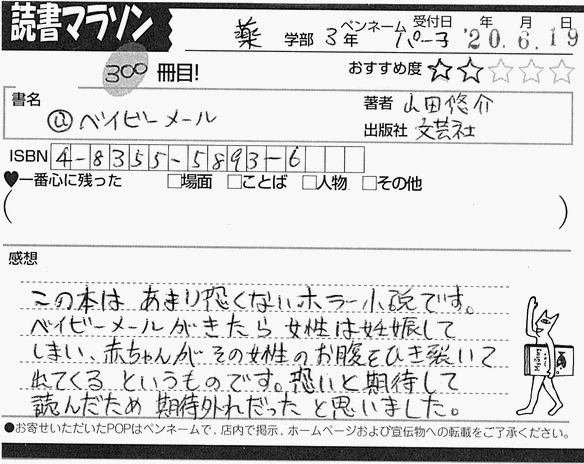 読書マラソン
薬 学部 3年 ペンネーム パー子 受付日 '20.6.19 年 月 日
300 冊目! おすすめ度 ☆☆☆☆☆
書名 @ベイビーメール
著者 山田悠介
出版社 文芸社
ISBN 4-8355-5893-6
♥一番心に残った □場面 □ことば □人物 □その他
( )
感想
この本は あまり恐くないホラー小説です。
ベイビーメールがきたら 女性は妊娠して
しまい、赤ちゃんが その女性のお腹をひき裂いて
出てくる というものです。恐いと期待して
読んだため 期待外れだった と思いました。
Mystery
●お寄せいただいたPOPはペンネームで、店内で掲示、ホームページおよび宣伝物への転載をご了承ください。